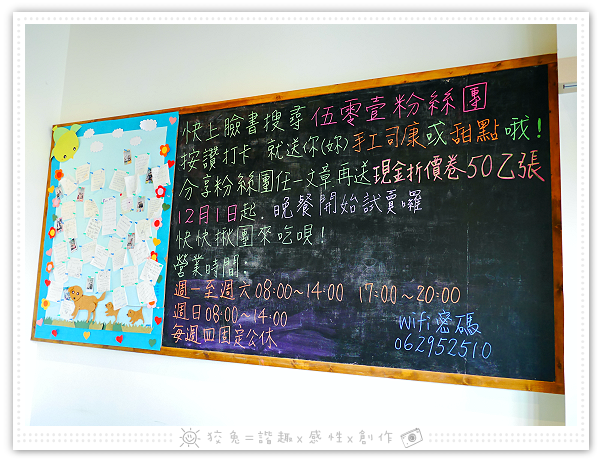 快上臉書搜尋伍零壹粉絲團
按讚打卡 就送你(妳)手工司康或甜點哦!
分享粉絲團任一文章再送現金折價卷50乙張
12月1日起.晚餐開始試賣囉
快快揪團來吃唄!
營業時間:
週一至週六08:00~14:00 17:00~20:00
週日08:00~14:00
每週四固定公休
Wifi密碼
062952510
狡兔=諧趣x感性x創作